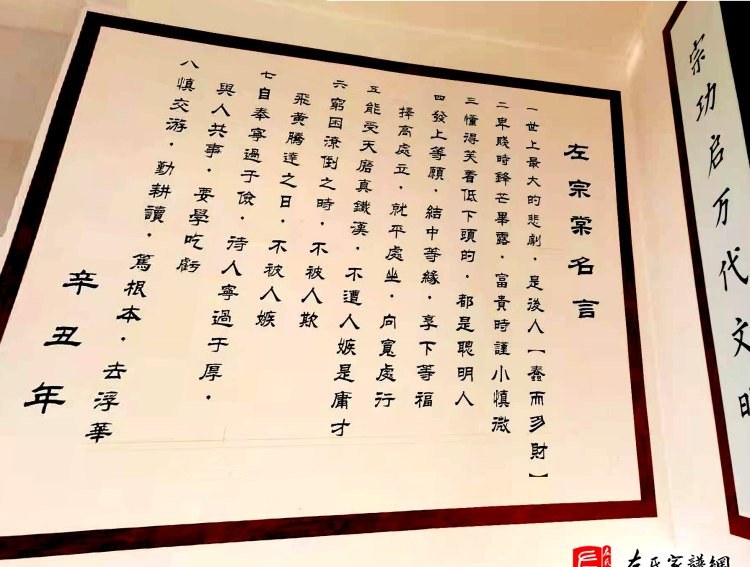 左宗棠名言
一世上最大的悲劇．是後人【蠢而多財】
二卑賤時鋒芒畢露．富貴時謹小慎微
三懂得笑看低下頭的．都是聰明人
四發上等願．結中等緣．享下等福
擇高處立．就平處坐．向寬處行
五能受天磨真鐵漢．不遭人嫉是庸才
六窮困潦倒之時．不被人欺
飛黃騰達之日．不被人嫉
七自奉寧過于儉．待人寧過于厚．
與人共事．要學吃虧
八慎交游．勤耕讀．篤根本．去浮華
辛丑年
宗功启万代文明
左氏家譜網